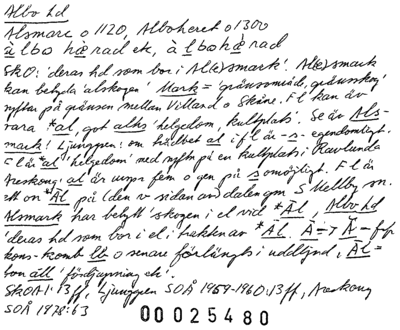 Albo hd
Alsmarc o 1120, Alboheret o 1300
àlbo hæ̀rad etc, à lbohæ̀rad
SkO: 'deras hd som bor i Al(e)smark'. Al(e)smark
kan betyda 'alskogen' Mark = 'gränsområde, gränsskog'
syftar på gränsen mellan Villand o Skåne. Fl kan äv
vara *al, got alhs 'helgedom, kultplats'. Se äv Als-
mark! Ljunggren: om häradet al i fl är -s- egendomligt.
Fl är *al 'helgedom' med syftn på en kultplats i Ravlunda
Areskoug: al är urspr fem o gen på s omöjligt. Fl är
ett on *Āl på (den v sidan av dalen gm S Mellby sn.
Alsmark har betytt 'skogen i el vid *Āl, Albo hd
'deras hd som bor i el. i trakten av *Āl. Ā → Ă = för
kons-komb lb o senare förlängts i uddljud, Āl =
ion áll 'fördjupning etc'.
SkOAl: 13 ff, Ljunggren SOÅ 1959-1960:13 ff, Areskoug
SOÅ 1978:63
00025480